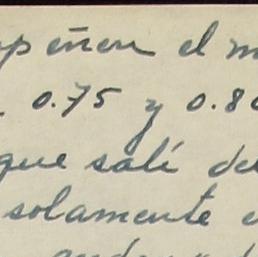 empeñen el m
0.75 y 0.80
que salí de
solamente e